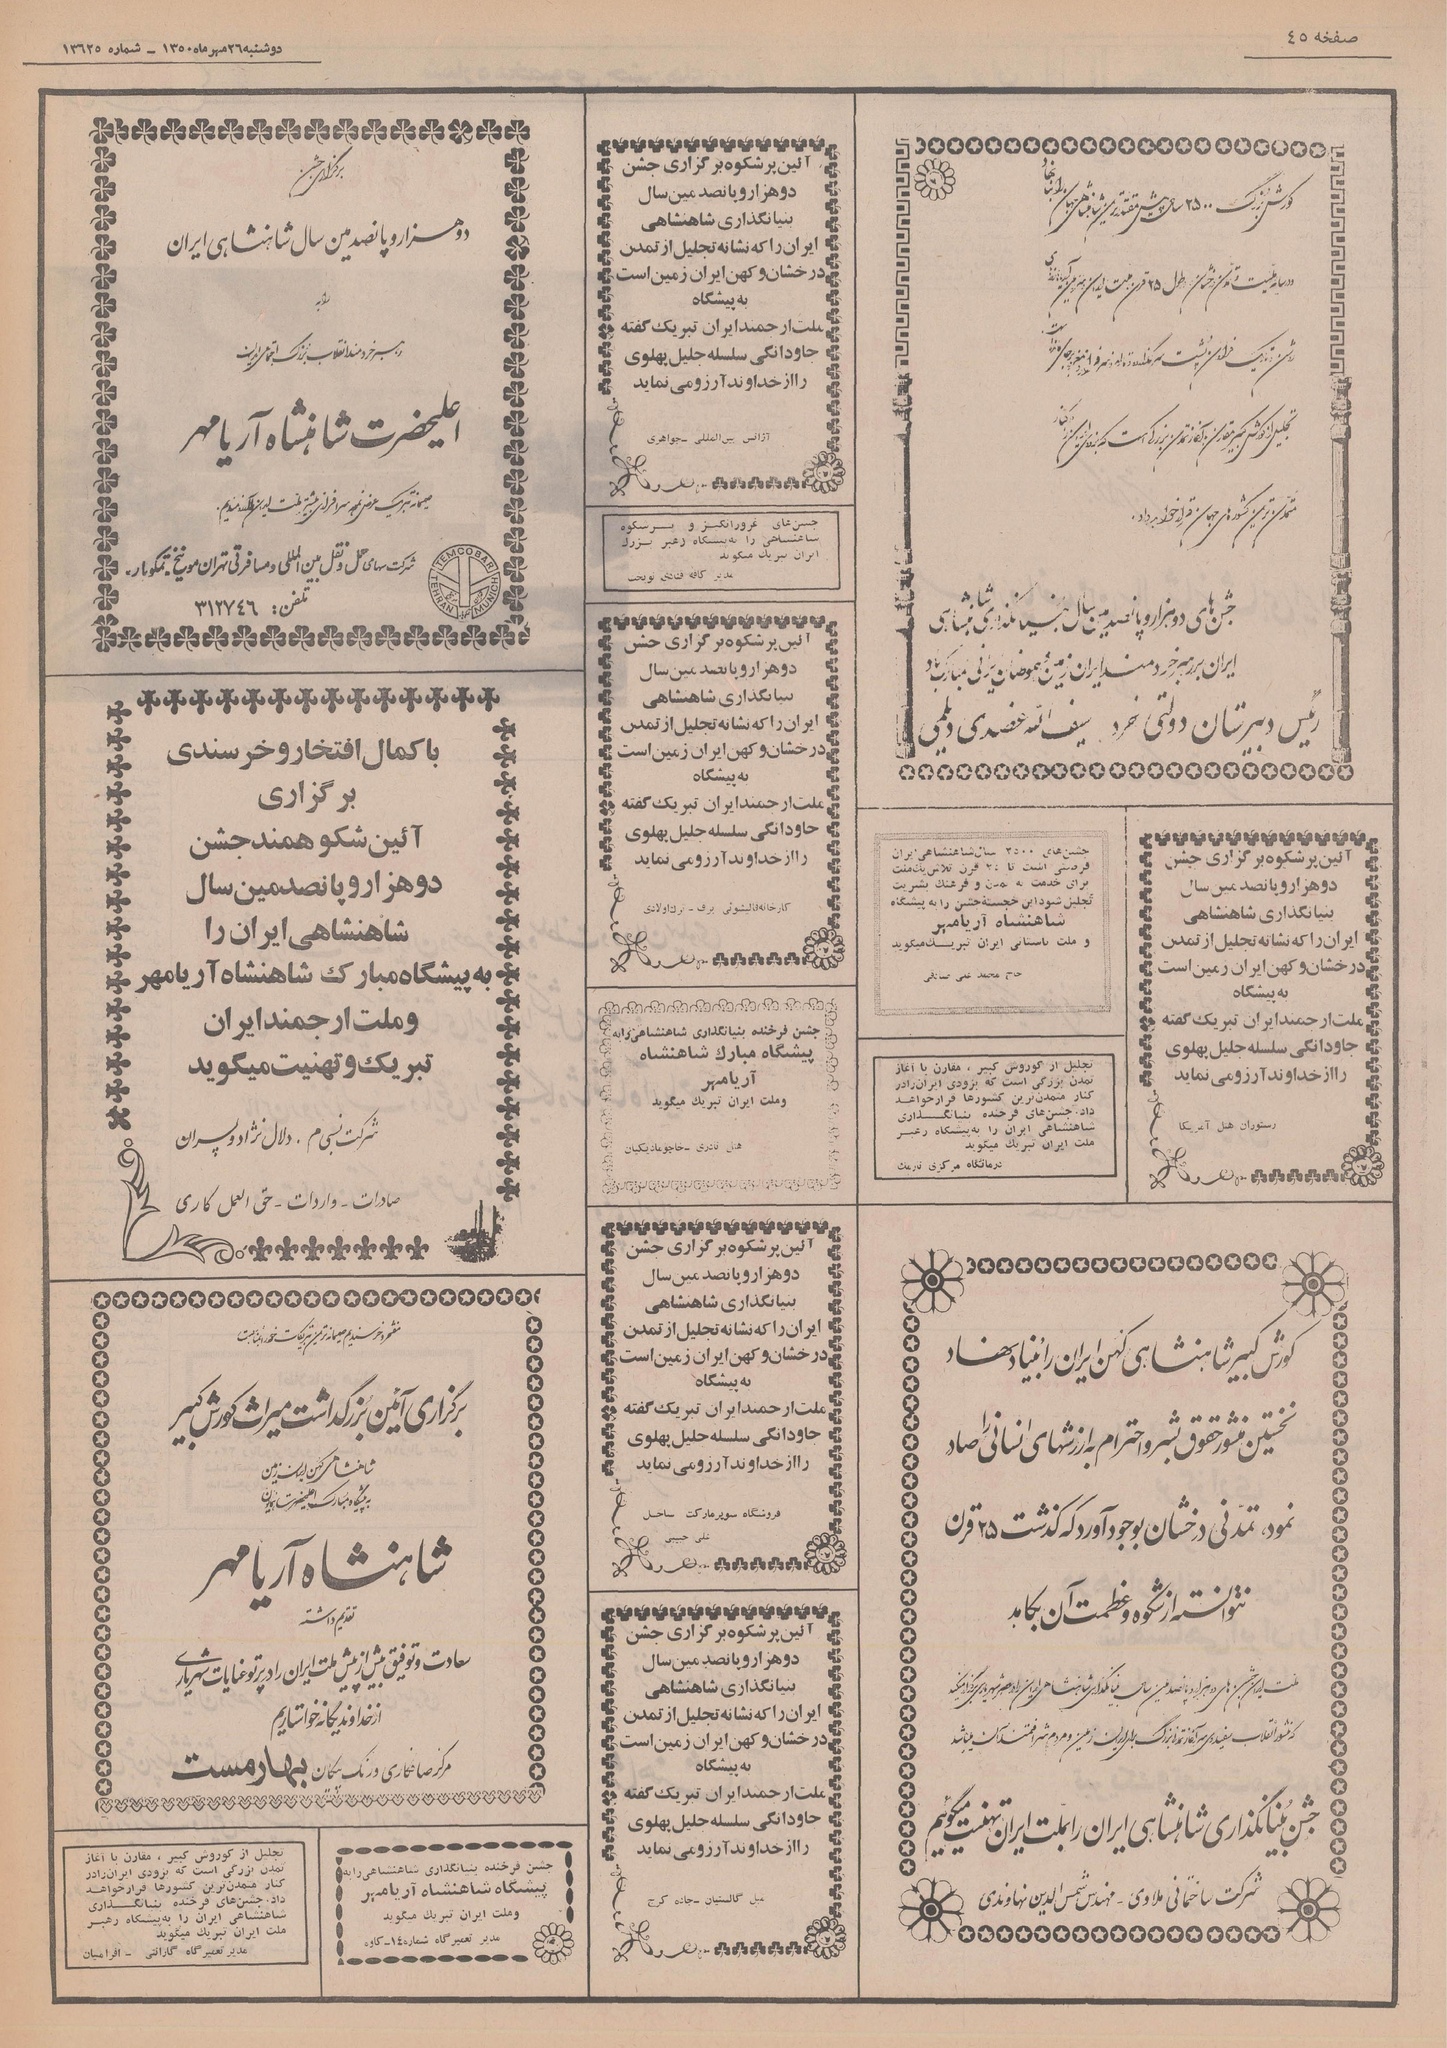 صفحه ٤٥
دوشنبه ٢٦ مهر ماه ١٣٥٠ ـ شماره ١٣٦٢٥
کورش بزرگ ٢٥٠٠ سال پیش مقتدرترین شاهنشاهی جهان را بنیاد نهاد
تجلیل از کورش کبیر مقارن با آغاز تمدن بزرگی است که بزودی ایران را در کنار
متمدن ترین کشورهای جهان قرار خواهد داد.
جشن های دو هزار و پانصدمین سال بنیانگذاری شاهنشاهی
ایران بر رهبر خردمند ایران زمین و هموطنان ایرانی مبارک باد
رئیس دبیرستان دولتی خرد سیف الله عضدی دیلمی
آئین پرشکوه برگزاری جشن
دو هزار و پانصدمین سال
بنیانگذاری شاهنشاهی
ایران را که نشانه تجلیل از تمدن
درخشان و کهن ایران زمین است
به پیشگاه
ملت ارجمند ایران تبریک گفته
جاودانگی سلسله جلیل پهلوی
را از خداوند آرزو می نماید
رستوران هتل آمریکا
جشن‌های ٢٥٠٠ سال شاهنشاهی ایران
فرصتی است تا ٢٥ قرن تلاش یک ملت
برای خدمت به تمدن و فرهنگ بشریت
تجلیل شود این خجسته جشن را به پیشگاه
شاهنشاه آریامهر
و ملت باستانی ایران تبریک میگوید
حاج محمد علی صادقی
تجلیل از کوروش کبیر ، مقارن با آغاز
تمدن بزرگی است که بزودی ایران را در
کنار متمدن‌ترین کشورها قرار خواهد
داد. جشن‌های فرخنده بنیانگذاری
شاهنشاهی ایران را به پیشگاه رهبر
ملت ایران تبریک میگوید
درمانگاه مرکزی نارمک
کورش کبیر شاهنشاهی کهن ایران را بنیاد نهاد
نخستین منشور حقوق بشر و احترام به ارزشهای انسانی را صادر
نمود، تمدنی درخشان بوجود آورد که گذشت ٢٥ قرن
نتوانسته از شکوه و عظمت آن بکاهد
جشن بنیانگذاری شاهنشاهی ایران را بملت ایران تهنیت میگوئیم
شرکت ساختمانی ملاوی - مهندس شمس الدین نهاوندی
آئین پرشکوه برگزاری جشن
دو هزار و پانصدمین سال
بنیانگذاری شاهنشاهی
ایران را که نشانه تجلیل از تمدن
درخشان و کهن ایران زمین است
به پیشگاه
ملت ارجمند ایران تبریک گفته
جاودانگی سلسله جلیل پهلوی
را از خداوند آرزو می نماید
آژانس بین‌المللی ـ جواهری
جشن‌های غرورانگیز و پرشکوه
شاهنشاهی را به پیشگاه رهبر بزرگ
ایران تبریک میگوید
مدیر کافه قنادی نوبخت
آئین پرشکوه برگزاری جشن
دو هزار و پانصدمین سال
بنیانگذاری شاهنشاهی
ایران را که نشانه تجلیل از تمدن
درخشان و کهن ایران زمین است
به پیشگاه
ملت ارجمند ایران تبریک گفته
جاودانگی سلسله جلیل پهلوی
را از خداوند آرزو می نماید
کارخانه قالیشوئی برف -
جشن فرخنده بنیانگذاری شاهنشاهی را به
پیشگاه مبارک شاهنشاه
آریامهر
و ملت ایران تبریک میگوید
هتل نادری -
آئین پرشکوه برگزاری جشن
دو هزار و پانصدمین سال
بنیانگذاری شاهنشاهی
ایران را که نشانه تجلیل از تمدن
درخشان و کهن ایران زمین است
به پیشگاه
ملت ارجمند ایران تبریک گفته
جاودانگی سلسله جلیل پهلوی
را از خداوند آرزو می نماید
فروشگاه سوپرمارکت ساحل
حبیبی
آئین پرشکوه برگزاری جشن
دو هزار و پانصدمین سال
بنیانگذاری شاهنشاهی
ایران را که نشانه تجلیل از تمدن
درخشان و کهن ایران زمین است
به پیشگاه
ملت ارجمند ایران تبریک گفته
جاودانگی سلسله جلیل پهلوی
را از خداوند آرزو می نماید
مبل گالستیان - جاده کرج
برگزاری جشن
دو هزار و پانصدمین سال شاهنشاهی ایران
را به
رهبر خردمند انقلاب بزرگ اجتماعی ایران
اعلیحضرت شاهنشاه آریامهر
شرکت سهامی حمل و نقل بین المللی و مسافرتی تهران مونیخ ـ تمکوبار.
تلفن: ٣١٢٧٤٦
TEMCOBAR
TEHRAN
MUNICH
با کمال افتخار و خرسندی
برگزاری
آئین شکوهمند جشن
دو هزار و پانصدمین سال
شاهنشاهی ایران را
به پیشگاه مبارک شاهنشاه آریامهر
و ملت ارجمند ایران
تبریک و تهنیت میگوید
شرکت نسبی م . دلال نژاد و پسران
صادرات - واردات - حق العمل کاری
برگزاری آئین بزرگداشت میراث کورش کبیر
شاهنشاهی کهن ایران زمین
به پیشگاه مبارک اعلیحضرت همایون
شاهنشاه آریامهر
تقدیم داشته
سعادت و توفیق بیش از پیش ملت ایران را در پرتو عنایات شهریاری
از خداوند یگانه خواستاریم
مرکز صافکاری و رنگ پیکان بهارمست
جشن فرخنده بنیانگذاری شاهنشاهی را به
پیشگاه شاهنشاه آریامهر
و ملت ایران تبریک میگوید
مدیر تعمیرگاه شماره ١٤-کاوه
تجلیل از کوروش کبیر ، مقارن با آغاز
تمدن بزرگی است که بزودی ایران را در
کنار متمدن‌ترین کشورها قرار خواهد
داد. جشن‌های فرخنده بنیانگذاری
شاهنشاهی ایران را به پیشگاه رهبر
ملت ایران تبریک میگوید
مدیر تعمیرگاه گاراژی - افرامیان